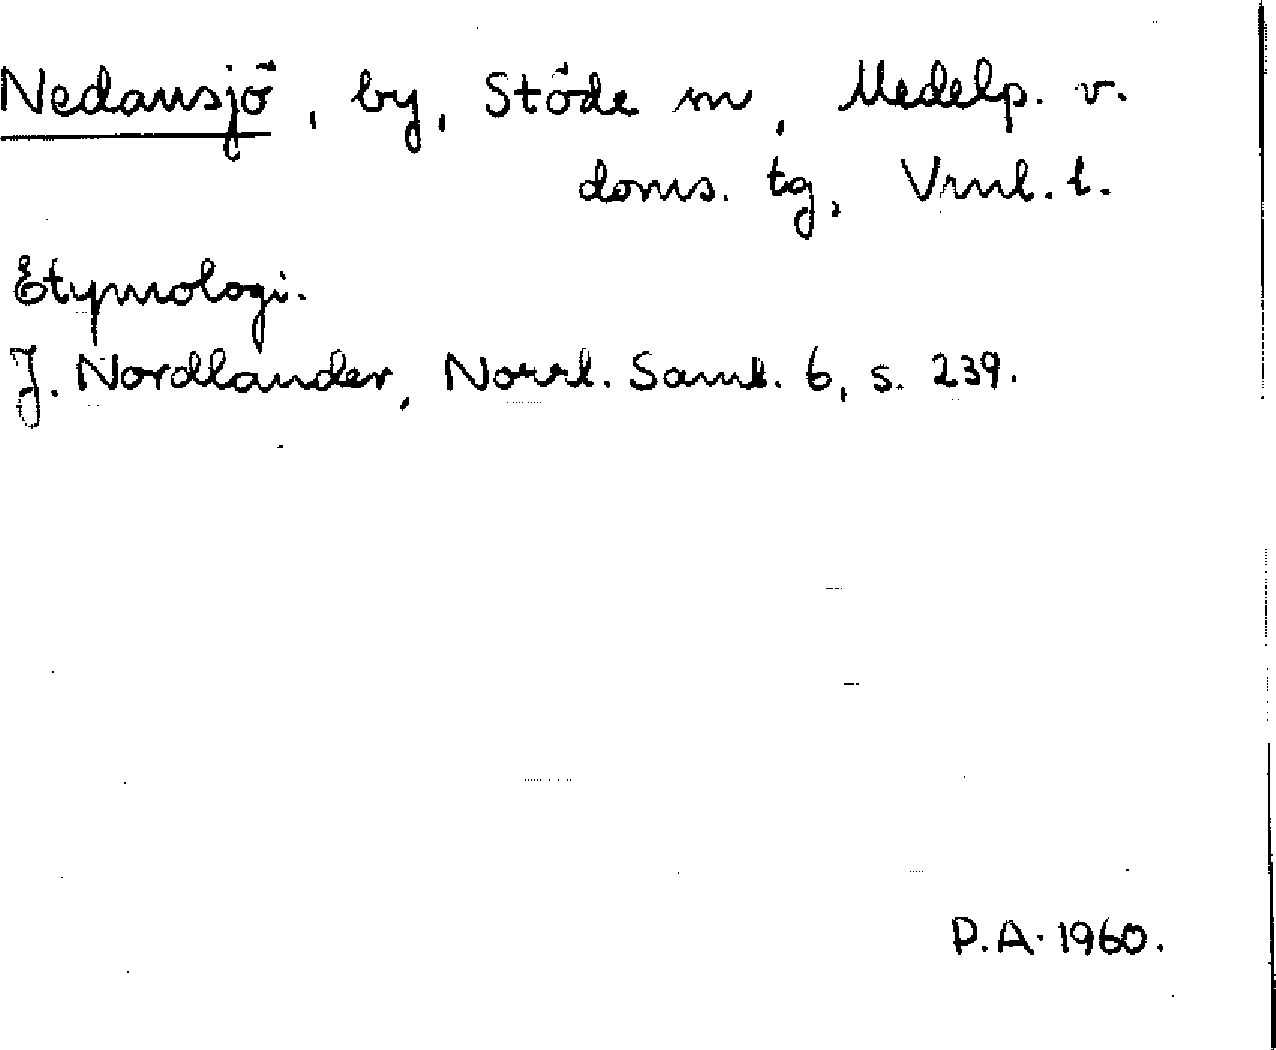 Nedansjö, by, Stöde sn, Medelp. v.
doms. tg, Vrnl. l.
Etymologi.
J. Nordlander, Norrl. Saml. 6, s. 239.
P.A. 1960.